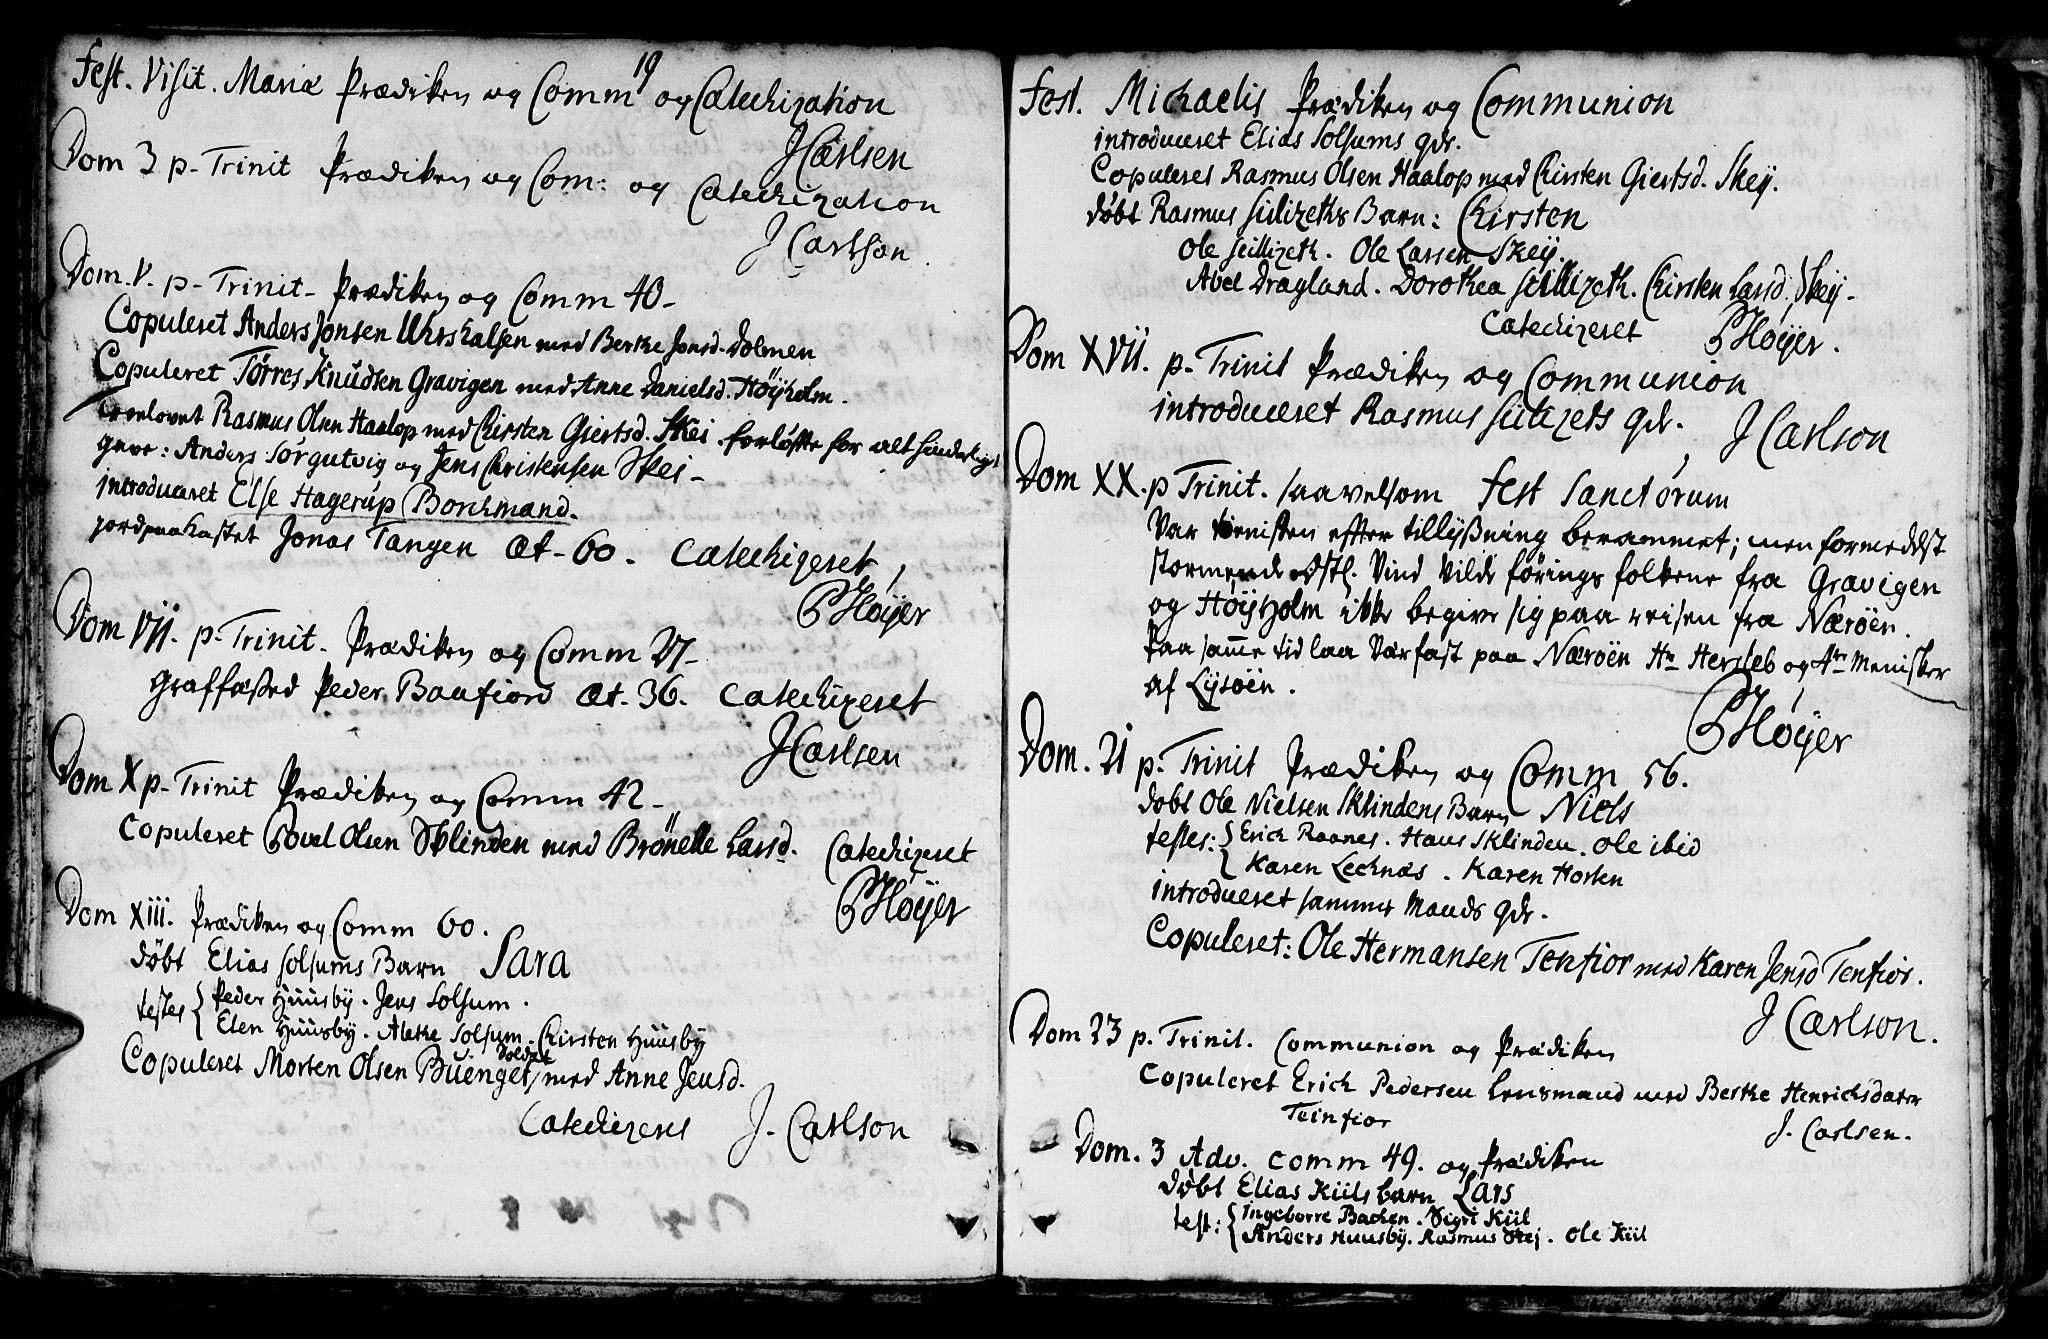 Fest. Visit. Mariæ Prædiken og Comm 19 og Catechization
JCarlsen
Dom 3 p. Trinit Prædiken og Com: og Catechization
J Carlson.
Dom. V. p. Trinit. Prædiken og Comm 40.
Copuleret Anders Jonsen med Berthe Jonsd. Dolmen
Copuleret Tørres Knudsen Gravigen med Anne Danielsd. Høÿholm.
troelovet Rasmus Olsen Haalop med Kirsten Giertsd. Skei forløffte for alt hinderligt
gave: Anders Sørgutvig og Jens Christensen Skei.
introduceret Else Hagerup Borchmand.
jordpaakastet Jonas Tangen æt. 60. Catechizeret
PHøÿer
Dom VII. p. Trinit. Prædiken og Comm 27.
Graffæsted Peder Baafiord æt. 36. Catechizeret
JCarlsen
Dom X p. Trinit Prædiken og Comm 42.
Copuleret Povel Olsen Sklinden med Brönelle Larsd. Catechizeret
PHøÿer
Dom XIII. Prædiken og Comm 60.
døbt Elias Solsums Barn Sara
testes Peder Huusbÿ. Jens Solsum.
Elen Huusbÿ. Alethe Solsum. Kirsten Huusbÿ
Copuleret Morten Olsen Buenget Soldat med Anne Jensd.
Catechizeret J. Carlson
Fest. Michaelis Prædiken og Communion
introduceret Elias Solsums qdr.
Copuleret Rasmus Olsen Haalop med Kirsten Giertsd. Skeÿ.
døbt Rasmus Siilizeths Barn: Kirsten
Ole Siillizeth. Ole Larsen Skeÿ.
Abel Dragland. Dorothea Siillizeth. Kirsten Larsd. Skeÿ.
Catechizeret PHøÿer.
Dom XVII. p. Trinit Prædiken og Communion
introduceret Rasmus Siilizets qdr.
J Carlson
Dom XX. p Trinit. saavelsom Fest Sanctorum
var tienisten effter tillÿsning berammet; men formedelst
stormende østl. Vind vilde førings folkene fra Gravigen
og Høÿholm ikke begive sig paa reisen fra Nærøen.
Paa samme tid laa værfast paa Nærøen Hr Hersleb og 4re Menisker
af Lÿsøen.
PHøÿer
Dom. 21 p. Trinit Prædiken og Comm 56.
døbt Ole Nielsen Sklindens Barn Niels
testes: Erich Raanes. Hans Sklinden. Ole ibid
Karen Lechnæs. Karen Horten
introduceret samme Mands qdr.
Copuleret: Ole Hermansen Tenfior med Karen Jensd Tenfior.
J Carlson.
Dom 23 p. Trinit. Communion og Prædiken
Copuleret Erich Pedersen Lensmand med Berthe Henrichsdater
Teinfior
J. Carlsen.
Dom. 3 Adv. comm 49. og Prædiken
døbt Elias Kiils barn Lars
test: Ingeborre Bachen. Sigri Kiil
Anders Huusbÿ. Rasmus Skej. Ole Kiil